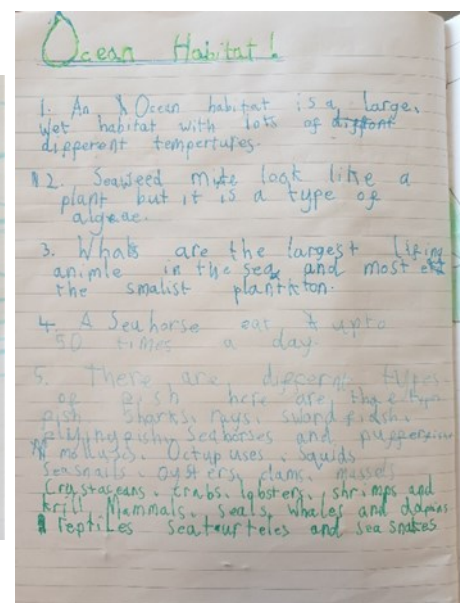 Ocean Habitat!
1. An Ocean habitat is a large,
wet habitat with lots of
different tempertures.
2. Seaweed mite look like a
plant but it is a type of
algeae.
3. Whals are the largest lifing
animle in the sea and most eat
the smalist plantkton.
4. A Seahorse eat upto
50 times a day.
5. There are differnt types
of fish here are the
fish Sharks, rays, swordfish,
flyingfish, Seahorses and
molluscs. Octupuses, Squids
Seasnails, oysters, clams, mussels
Crastaceans. crabs, lobsters, shrimps and
krill. Mammals, seals, whales and
reptiles seaturteles and seasnakes